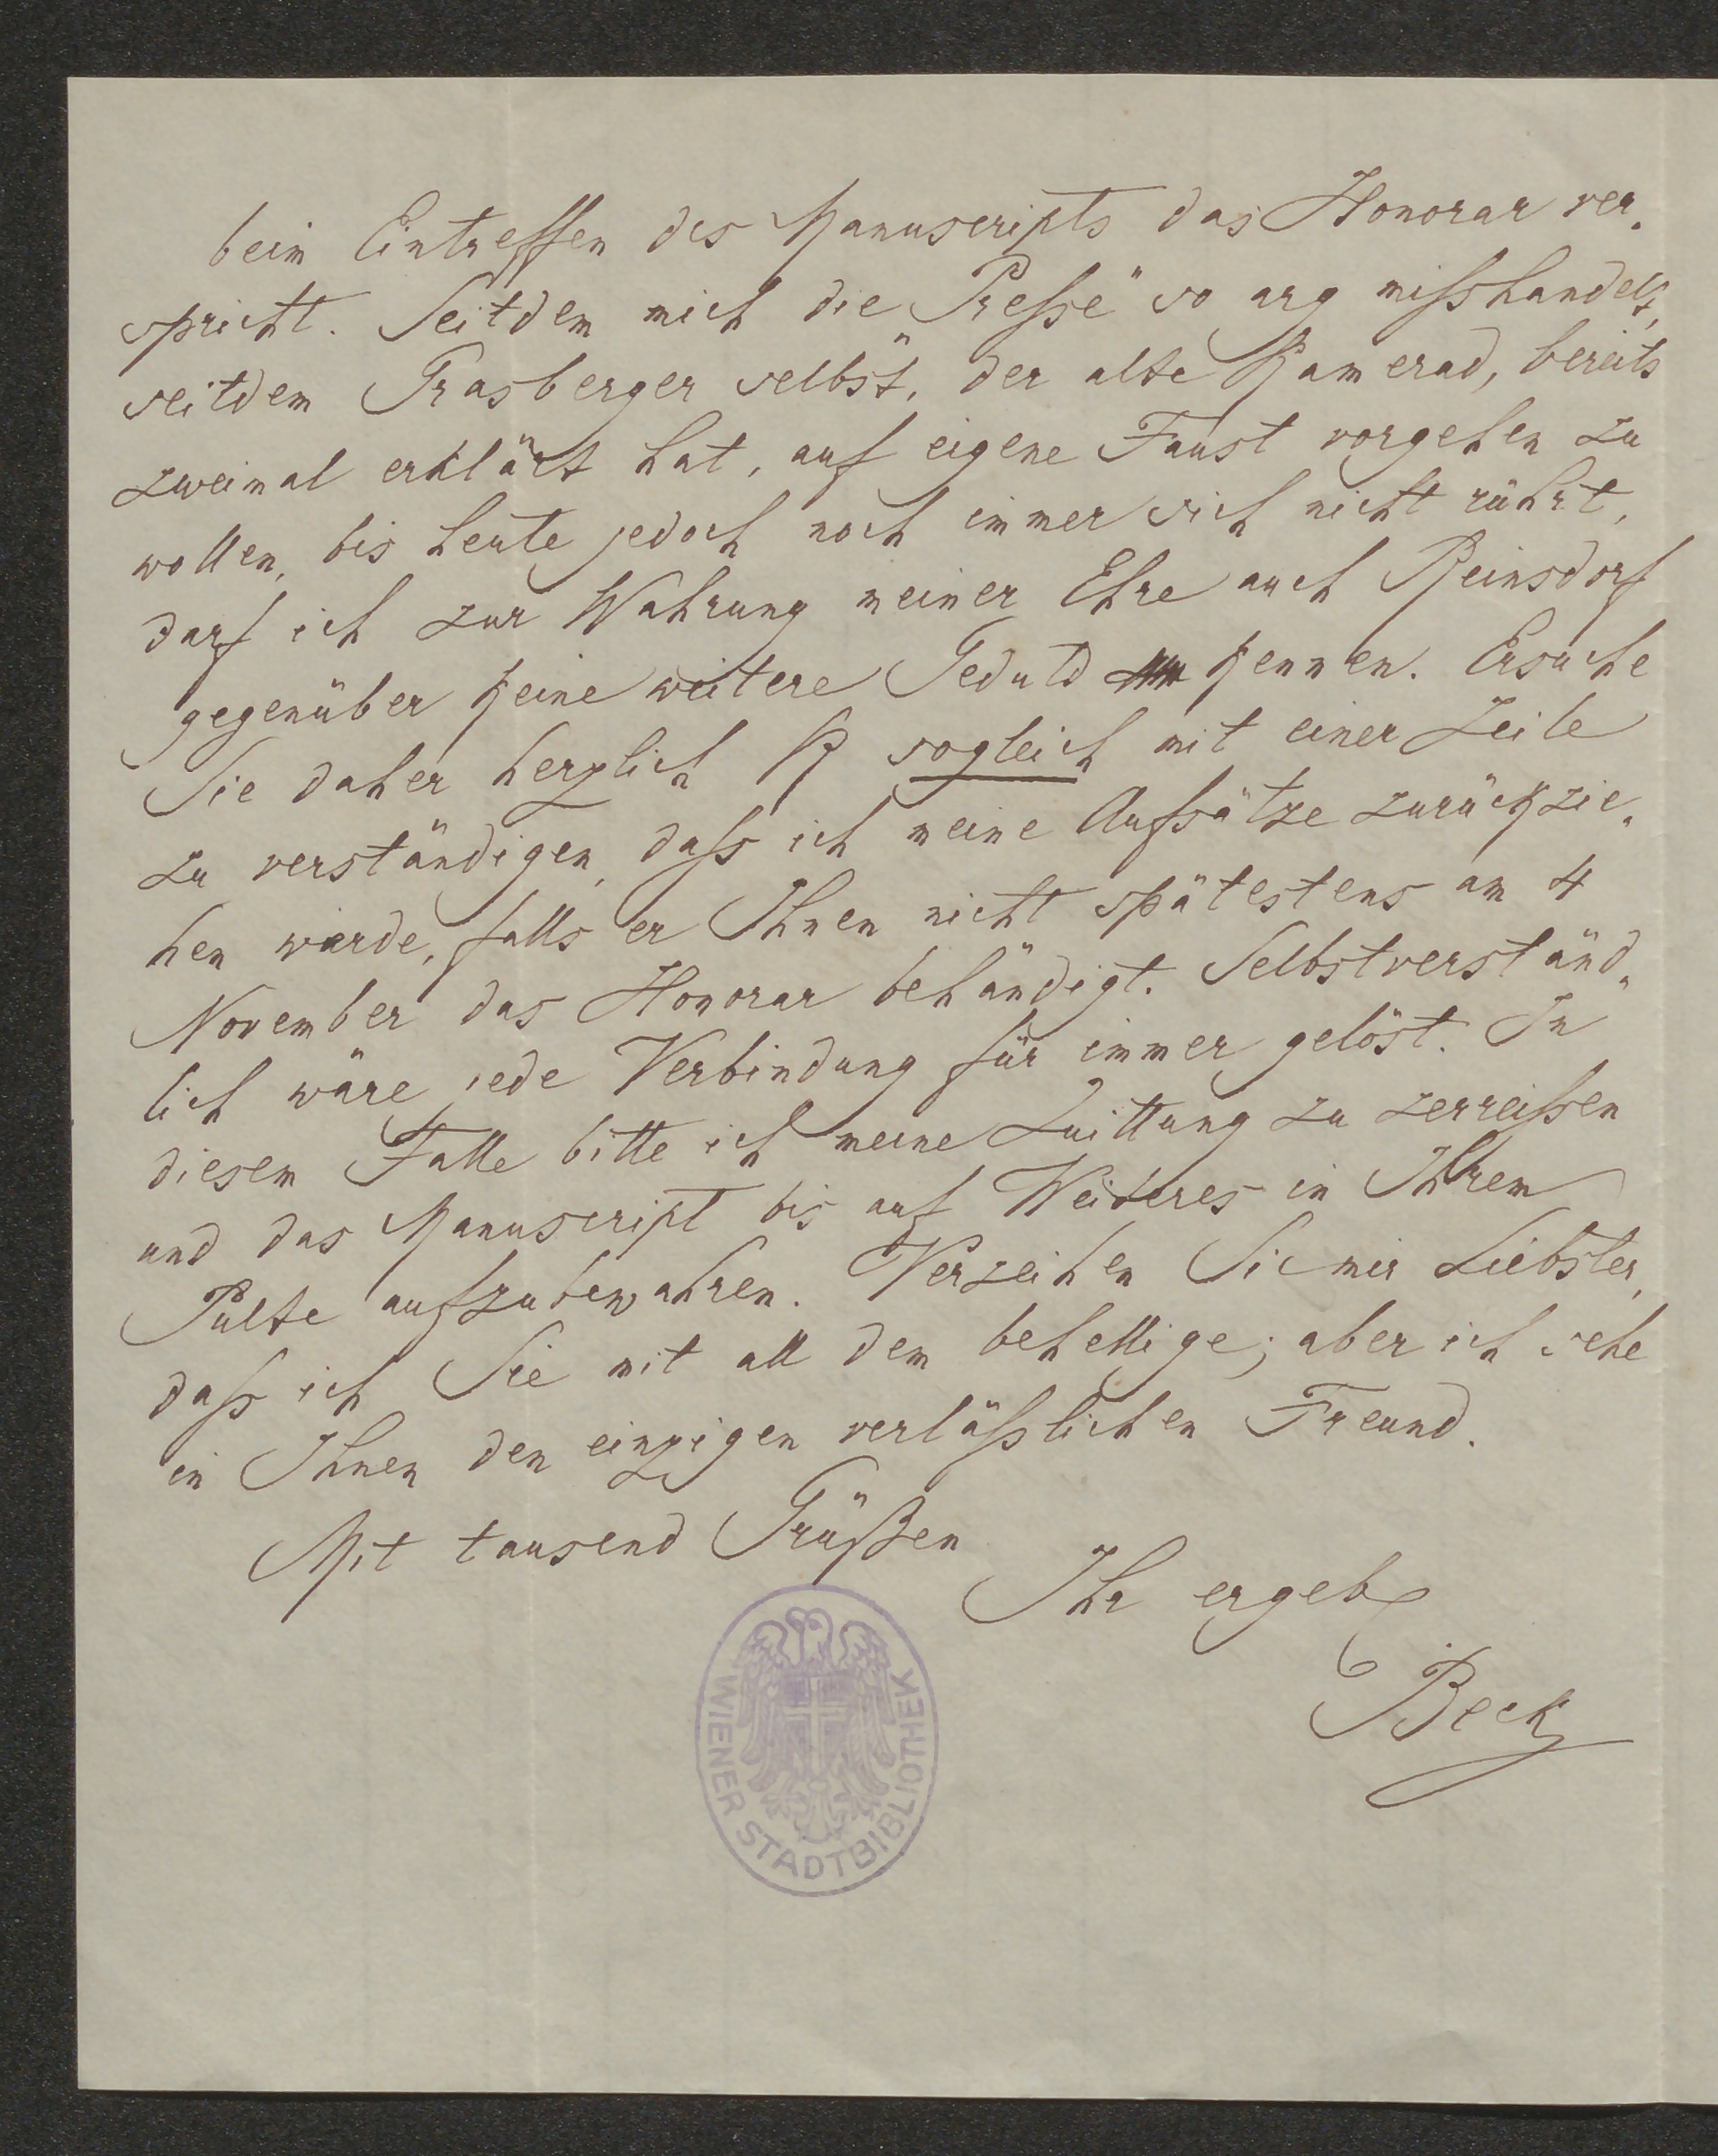 beim Eintreffen des Manuscripts das Honorar ver-
spricht. Seitdem mich die „Presse" so arg misshandelt,
seitdem Grasberger selbst, der alte Kamerad, bereits
zweimal erklärt hat, auf eigene Faust vorgehen zu
wollen, bis heute jedoch noch immer sich nicht rührt,
darf ich zur Wahrung meiner Ehre auch Reinsdorf
gegenüber keine weitere Geduld kennen. Ersuche
Sie daher herzlich R sogleich mit einer Zeile
zu verständigen, daß ich meine Aufsätze zurückzie-
hen würde, falls er Ihnen nicht spätestens am 4
November das Honorar behändigt. Selbstverständ-
lich wäre jede Verbindung für immer gelöst. In
diesem Falle bitte ich meine Quittung zu zerreißen
und das Manuscript bis auf Weiteres in Ihrem
Pulte aufzubewahren. Verzeihen Sie mir Liebster,
daß ich Sie mit all dem behellige; aber ich sehe
in Ihnen den einzigen verläßlichen Freund.
Mit tausend Grüßen
Ihr ergeb
Beck
WIENER STADTBIBLIOTHEK